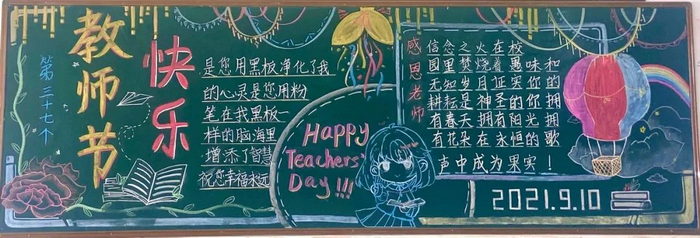 第三十七个
教师节
快乐
是您用黑板净化了我
的心灵是您用粉
笔在我黑板一
样的脑海里
增添了智慧
祝您幸福永远
HAPPY
Teachers'
DAY!!!
感恩老师
信念之火在校
园里焚烧着愚味和
无知岁月证实你的
耕耘是神圣的你拥
有春天拥有阳光拥
有花朵在永恒的歌
声中成为果实！
2021.9.10